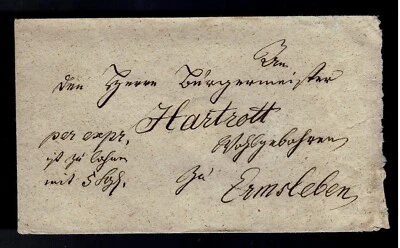 An
den Herrn Bürgermeister
Hartrott
Wohlgebohren
zu
Ermsleben
per expr,
ist zu lohnen
mit 5 Sgr.